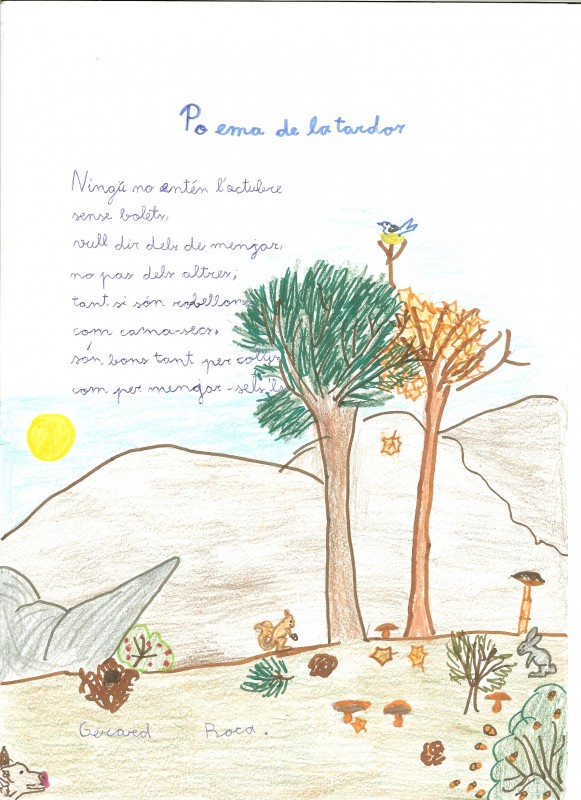 Poema de la tardor
Ningú no entén l'octubre
sense bolets,
vull dir dels de menjar,
no pas dels altres;
tant si són robellons
com cama-secs,
són bons tant per
com per menjar-
Gerard Roca.